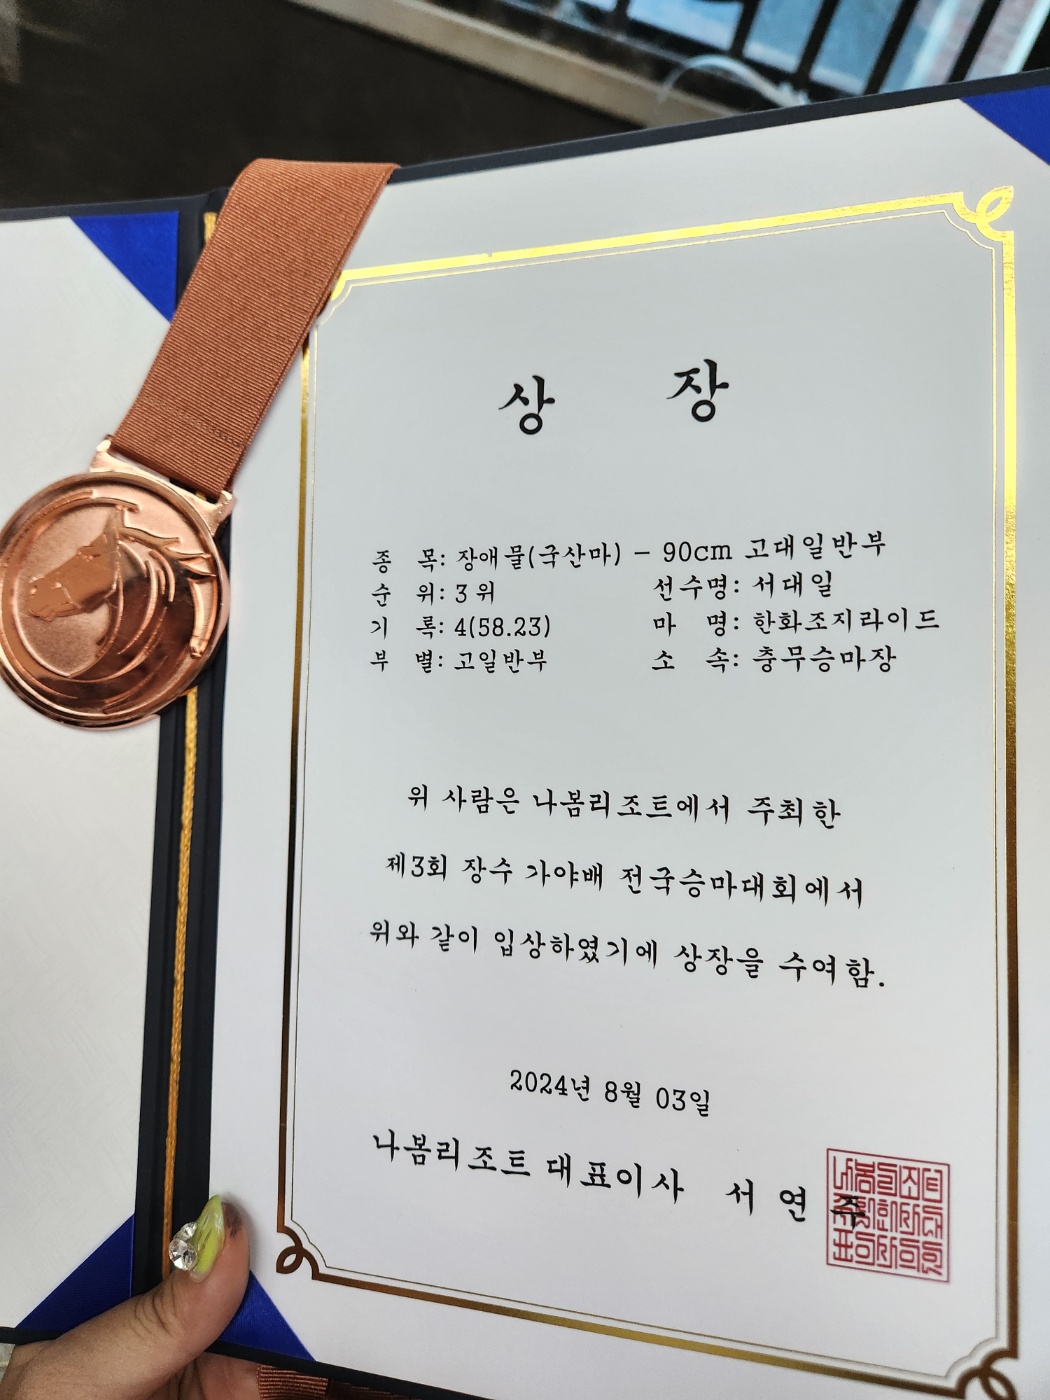 상 장
종 목: 장애물(국산마) - 90cm 고대일반부
순 위: 3위 선수명: 서대일
기 록: 4(58.23) 마 명: 한화조지라이드
부 별: 고일반부 소 속: 충무승마장
위 사람은 나봄리조트에서 주최한
제3회 장수 가야배 전국승마대회에서
위와 같이 입상하였기에 상장을 수여함.
2024년 8월 03일
나봄리조트 대표이사 서 연 주